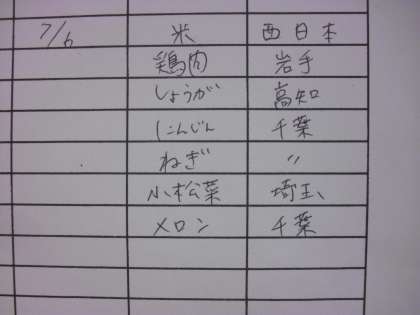 7/6 米 西日本
鶏肉 岩手
しょうが 高知
にんじん 千葉
ねぎ 〃
小松菜 埼玉
メロン 千葉